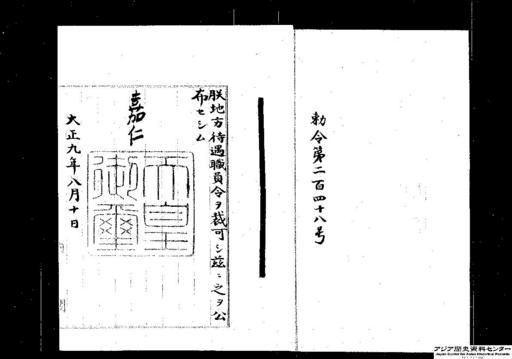 勅令第二百四十八号
朕地方待遇職員令ヲ裁可シ茲ニ之ヲ公
布セシム
嘉仁
天皇
御璽
大正九年八月十日
アジア歴史資料センター
Japan Center for Asian Historical Records